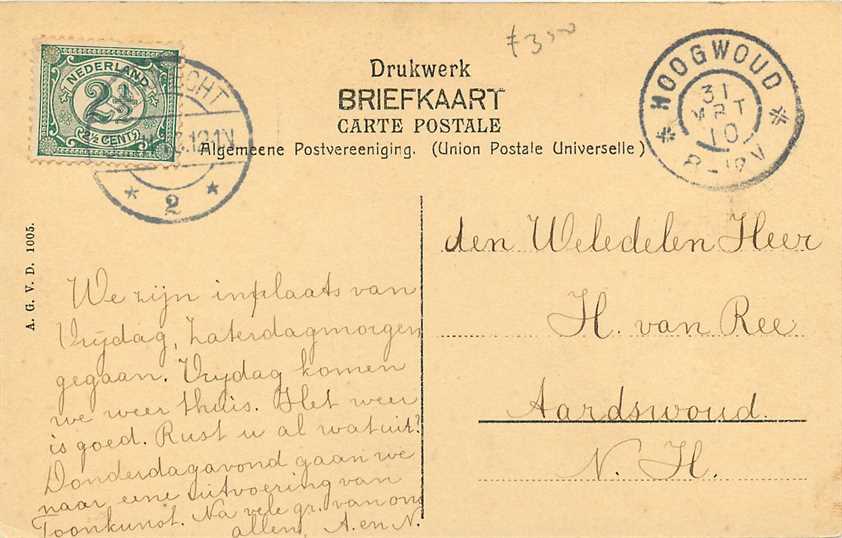 ƒ 3,50
NEDERLAND
2½
2½ CENT
ECHT
12.1V
* 2 *
Drukwerk
BRIEFKAART
CARTE POSTALE
Algemeene Postvereeniging. (Union Postale Universelle)
* HOOGWOUD *
31
MRT
10
8-12V
A. G. V. D. 1005.
We zijn inplaats van
Vrijdag, Zaterdagmorgen
gegaan. Vrijdag komen
we weer thuis. Het weer
is goed. Rust u al wat uit?
Donderdagavond gaan we
naar eene uitvoering van
Toonkunst. Na vele gr. van ons
allen, A. en N.
den Weledelen Heer
H. van Ree
Aardswoud.
N. H.